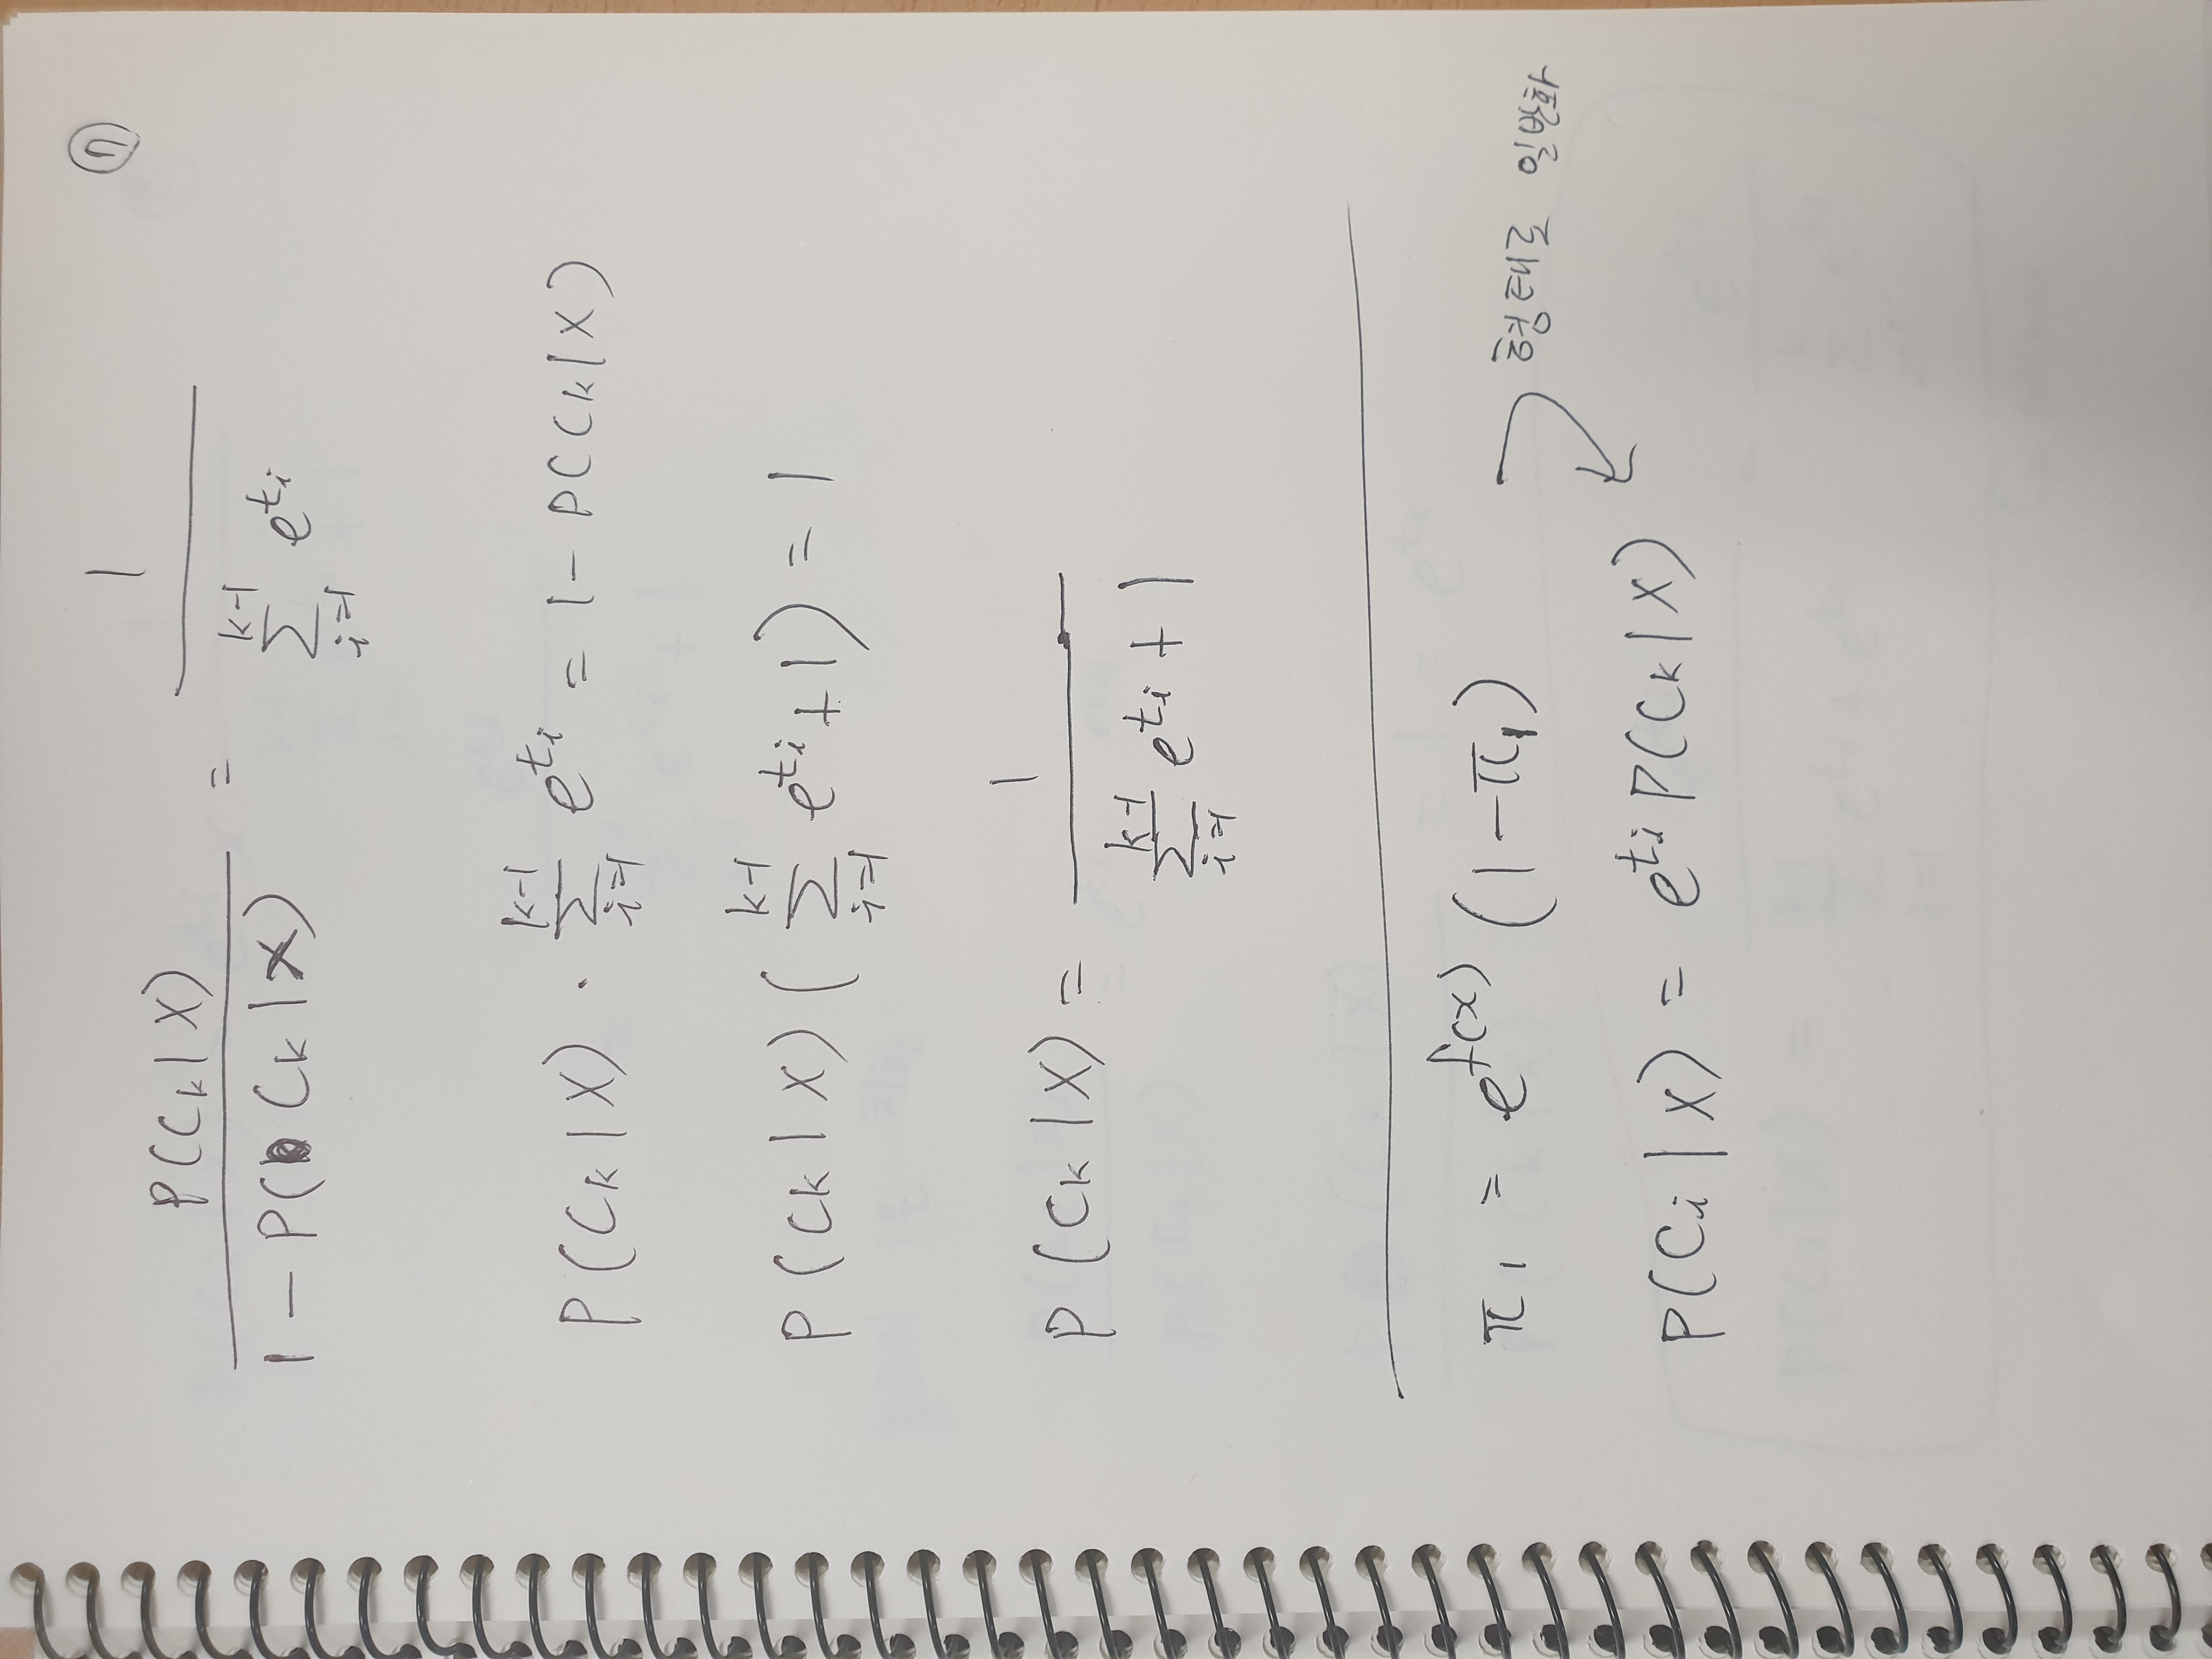 ⑦
P(Ck|X) / 1 - P(Ck|X) = 1 / Σ_{i=1}^{k-1} e^{ti}
P(Ck|X) · Σ_{i=1}^{k-1} e^{ti} = 1 - P(Ck|X)
P(Ck|X) ( Σ_{i=1}^{k-1} e^{ti} + 1 ) = 1
P(Ck|X) = 1 / Σ_{i=1}^{k-1} e^{ti} + 1
π1 = e^{f(x)} (1 - π1)
형태로 일반화
P(Ci|X) = e^{ti} P(Ck|X)